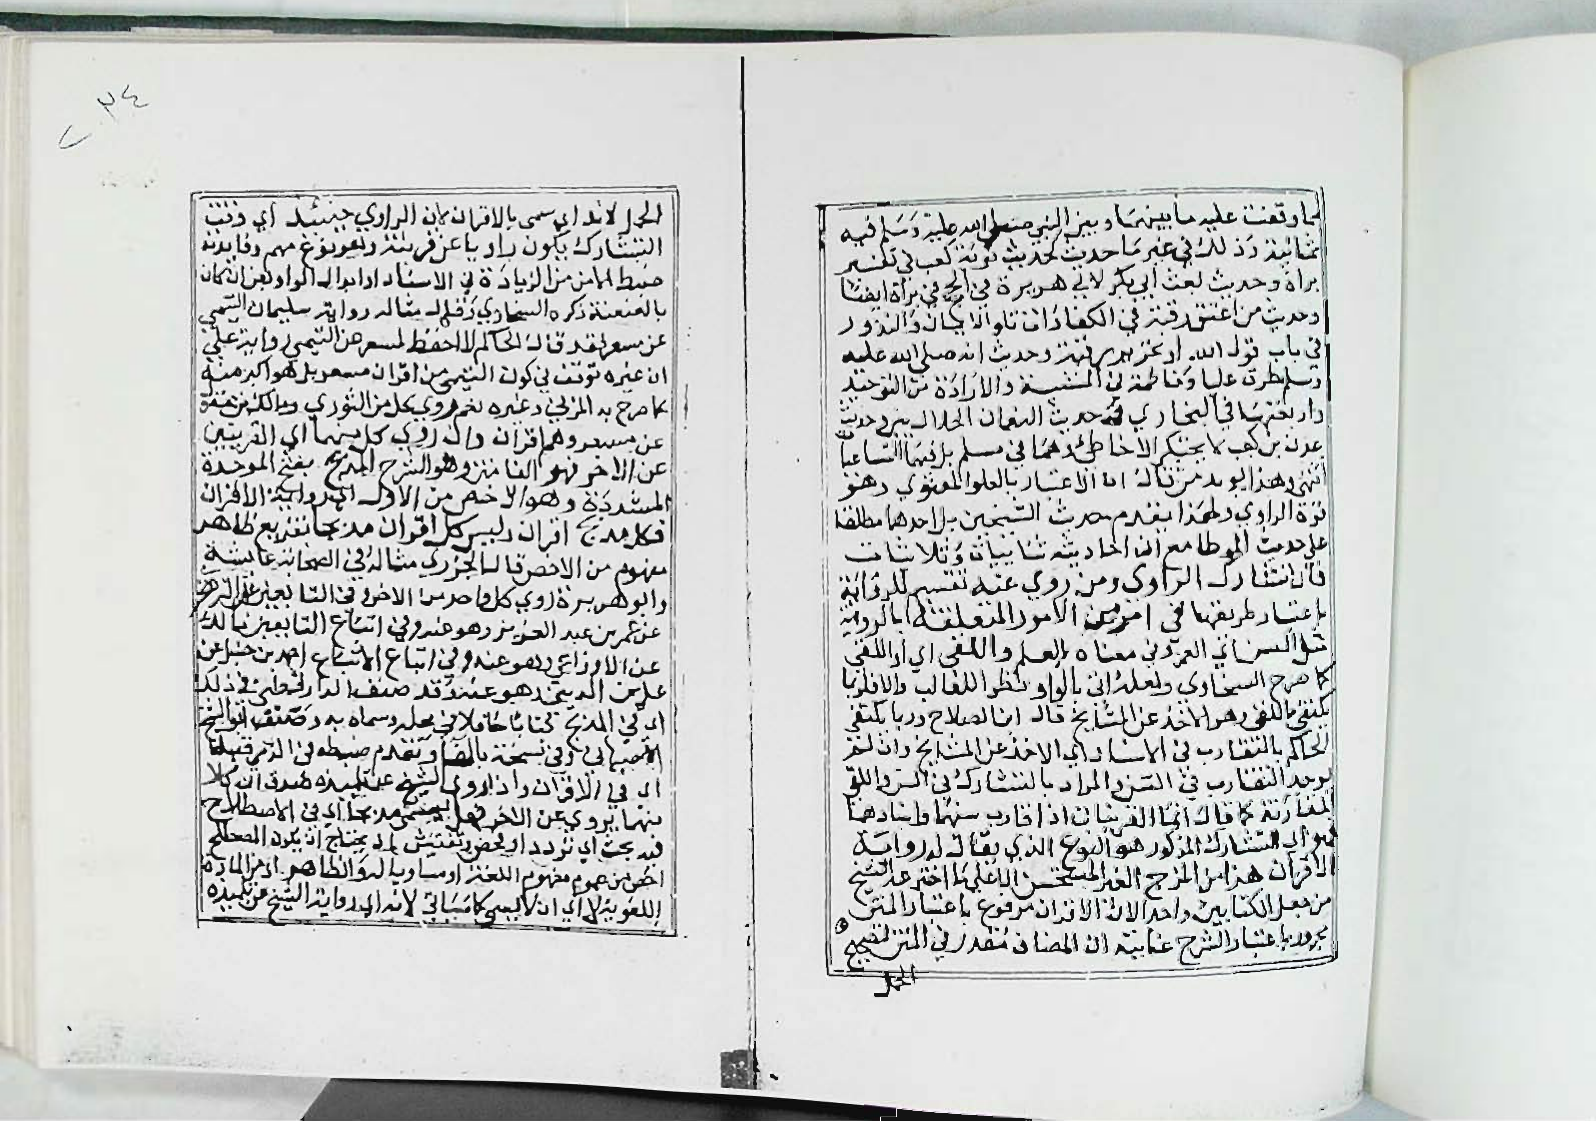 مما وقفت عليه ما بينهما وبين النبي صلى الله عليه وسلم فيه
ثمانية وذلك في غير ما حديث كحديث توبة كعب في تفسير
براة وحديث بعث أبي بكر لابي هريرة في الحج في براة ايضا
وحديث من اعتق رقبة في الكفارات تلو الايمان والنذور
في باب قول الله او تحرير رقبة وحديث انه صلى الله عليه
وسلم طرق عليا وفاطمة في المشيئة والارادة من التوحيد
في البخاري حديث النعمان الحلال بين وحديث
لا يحتكر الا خاطئ وهما في مسلم
انتهى وهذا يويد من قال ان الاعتبار بالعلو المعنوي وهو
قوة الراوي ولهذا يقدم حديث الشيخين بل احدهما مطلقا
على حديث الموطا مع ان احاديثه ثنائيات وثلاثيات
فان تشارك الراوي ومن روي عنه تقسيم للرواية
باعتبار طريقها في امر من الامور المتعلقة بالرواية
مثل السن اي العمر وفي معناه العلم واللقي اي او اللقي
كما صرح السخاوي ولعله اتى بالواو نظرا للغالب والا فلربما
يكتفي باللقي وهو الاخذ عن المشايخ قال ابن الصلاح وربما يكتفي
الحاكم بالتقارب في الاسناد اي الاخذ عن المشايخ وان لم
يوجد التقارب في السن والمراد بالتشارك في السن واللقي
المقاربة كما قال انما القرينان اذا تقارب سنهما واسنادهما
فهو اي التشارك المذكور هو النوع الذي يقال له رواية
الاقران هذا من المزج الغير المستحسن
من جعل الكتابين واحدا لان الاقران مرفوع باعتبار المتن
مجرور باعتبار الشرح غايته ان المضاف مقدر في المتن لتصحيح
الحمل
الحمل لانه اي سمي بالاقران لان الراوي حينئذ اي وقت
التشارك يكون راويا عن قرينه وهو نوع مهم وفايدته
ضبط الامن من الزيادة في الاسناد او ابدال الواو بعن ان كان
بالعنعنة ذكره السخاوي مثاله رواية سليمان التيمي
عن مسعر فقد قال الحاكم لا احفظ لمسعر عن التيمي رواية على
ان غيره توقف في كون التيمي من اقران مسعر بل هو اكبر منه
كما صرح به المزي وغيره نعم روي كل من الثوري ومالك بن مغول
عن مسعر وهم اقران وان روي كل منهما اي القرينين
عن الاخر فهو الفا متن وهو الشرح المدبج بفتح الموحدة
المشددة وهو الاخص من الاول اي رواية الاقران
فكل مدبج اقران وليس كل اقران مدبجا تفريع ظاهر
مفهوم من الاخص قال الجزري مثاله في الصحابة عايشة
وابو هريرة روي كل واحد من الاخر وفي التابعين الزهري
عن عمر بن عبد العزيز وهو عنه وفي اتباع التابعين مالك
عن الاوزاعي وهو عنه وفي اتباع الاتباع احمد بن حنبل عن
علي بن المديني وهو عنه وقد صنف الدارقطني في ذلك
اي في المدبج كتابا حافلا في مجلد وسماه به وصنف ابو الشيخ
الاصبهاني وفي نسخة بالفاء وتقدم ضبطه في الذي قبله
اي في الاقران واذا روى الشيخ عن تلميذه صدق ان كلا
منهما يروي عن الاخر فهل يسمى مدبجا اي في الاصطلاح
فيه بحث اي تردد او فحص وتفتيش اي يحتاج ان يكون المصطلح
اخص من عموم مفهوم اللغة او مساويا له والظاهر اي من المادة
اللغوية لا اي ان لا يسمى كما سياتي لانه اي رواية الشيخ عن تلميذه